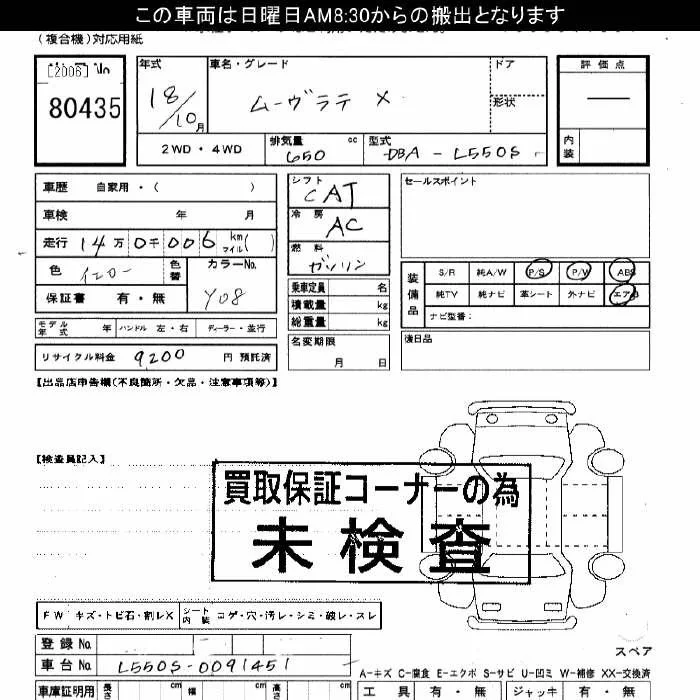 この車両は日曜日AM8:30からの搬出となります
(複合機)対応用紙
[2006] No
80435
年式
18/10月
車名・グレード
ムーヴラテ X
ドア
形状
評価点
―
内装
2WD・4WD
排気量 cc
650
型式
DBA-L550S
車歴 自家用・( )
車検 年 月
走行 14万0千006 km マイル( )
色 イエロー
色替
カラーNo.
Y08
保証書 有・無
シフト
CAT
冷房
AC
燃料
ガソリン
乗車定員 名
積載量 kg
総重量 kg
モデル年式 年 ハンドル 左・右 ディーラー・並行
リサイクル料金 9200 円 預託済
名変期限
月 日
セールスポイント
装備品
S/R 純A/W P/S P/W ABS
純TV 純ナビ 革シート 外ナビ エアB
ナビ型番:
後日品
【出品店申告欄(不良箇所・欠品・注意事項等)】
【検査員記入】
買取保証コーナーの為
未検査
FW キズ・トビ石・割レX
シート内装 コゲ・穴・汚レ・シミ・破レ・スレ
登録No.
車台No. L550S-0091451
スペア
A-キズ C-腐食 E-エクボ S-サビ U-凹ミ W-補修 XX-交換済
車庫証明用 長さ cm 幅 cm 高さ cm
工具 有・無 ジャッキ 有・無